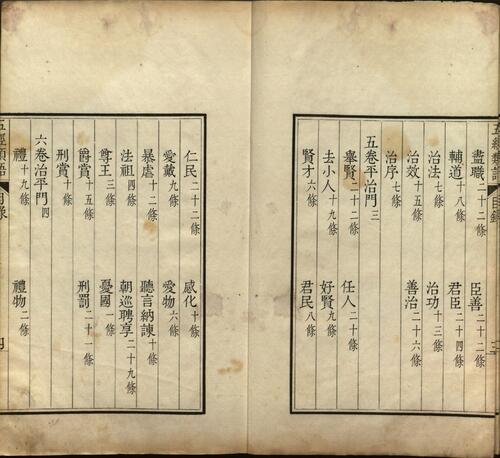 五經類語 目錄 三
盡職二十二條 臣善二十二條
輔道十八條 君臣二十四條
治法七條 治功十三條
治效十五條 善治二十六條
治序七條
五卷平治門三
舉賢二十二條 任人二十條
去小人十九條 好賢九條
賢才六條 君民八條
仁民二十二條 感化十條
愛戴九條 愛物六條
暴虐十二條 聽言納諫十條
法祖四條 朝巡聘享二十九條
尊王三條 憂國一條
爵賞十五條 刑罰二十一條
刑賞十條
六卷治平門四
禮十九條 禮物二條
五經類語 目錄 四